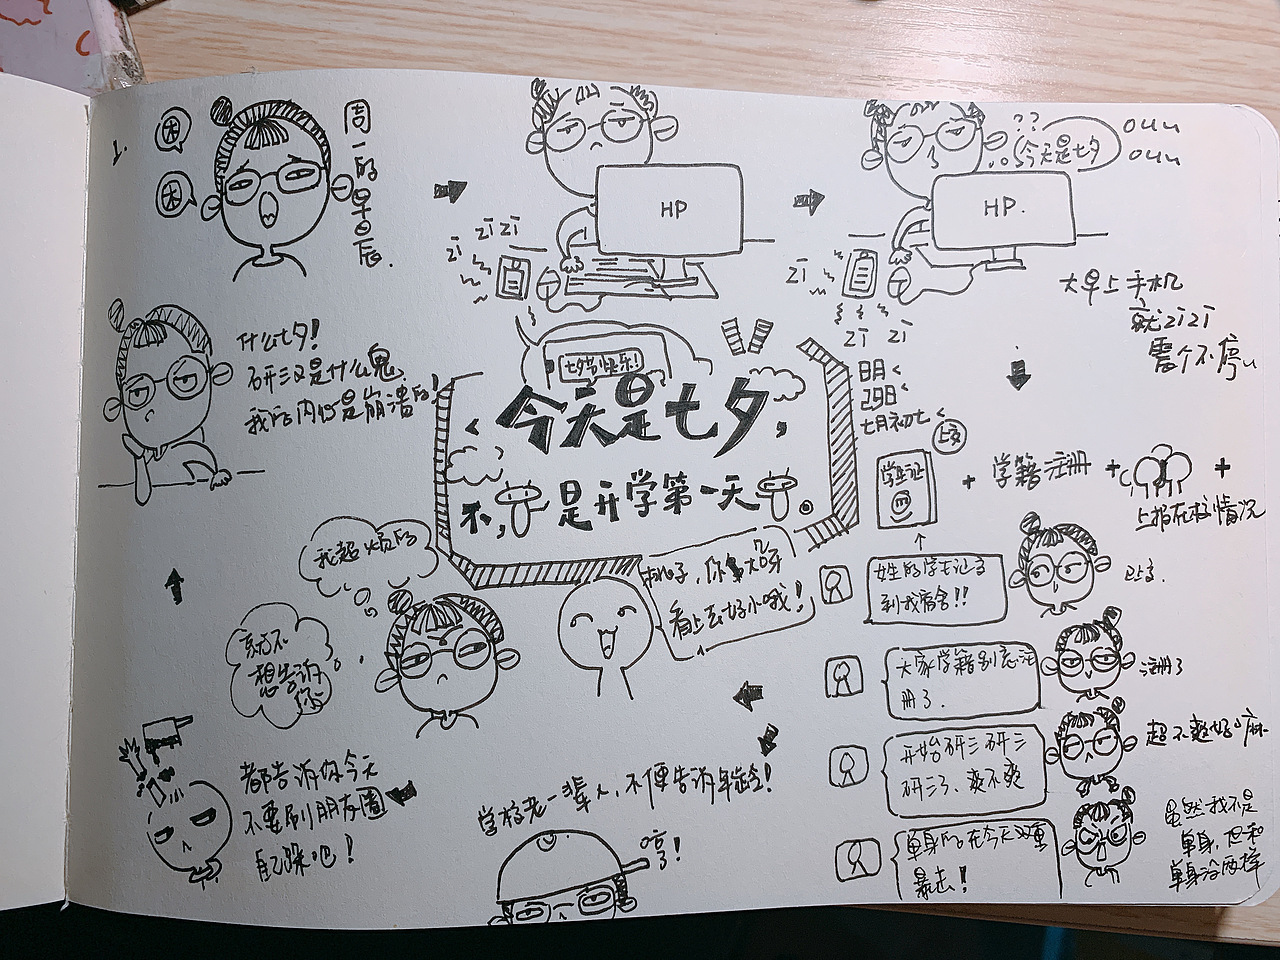 1.
困
困
周一的早日辰.
HP
zī zī zī
HP.
??
今天是七夕
ouu
ouu
zī
zī zī
大早上手机
就zīzī
震个不停
什么七夕!
研三又是什么鬼
我的内心是崩溃的!
七夕节快乐!
今天是七夕,
不,是开学第一天
8月
29日
七月初七
上交
学生证
+ 学籍注册 +
+
上报在校情况
姓的学生证交
到我宿舍!!
已交.
大家学籍别忘注
册了.
注册了
开始研三研三
研三了、爽不爽
超不爽好嘛
单身的在今天双重
暴击!
虽然我不是
单身,但和
单身没两样
看上去好小哦!
学校老一辈人,不便告诉年龄!
哼!
我超烦的
就不
想告诉
你
都告诉你今天
不要刷朋友圈
自己躲吧!